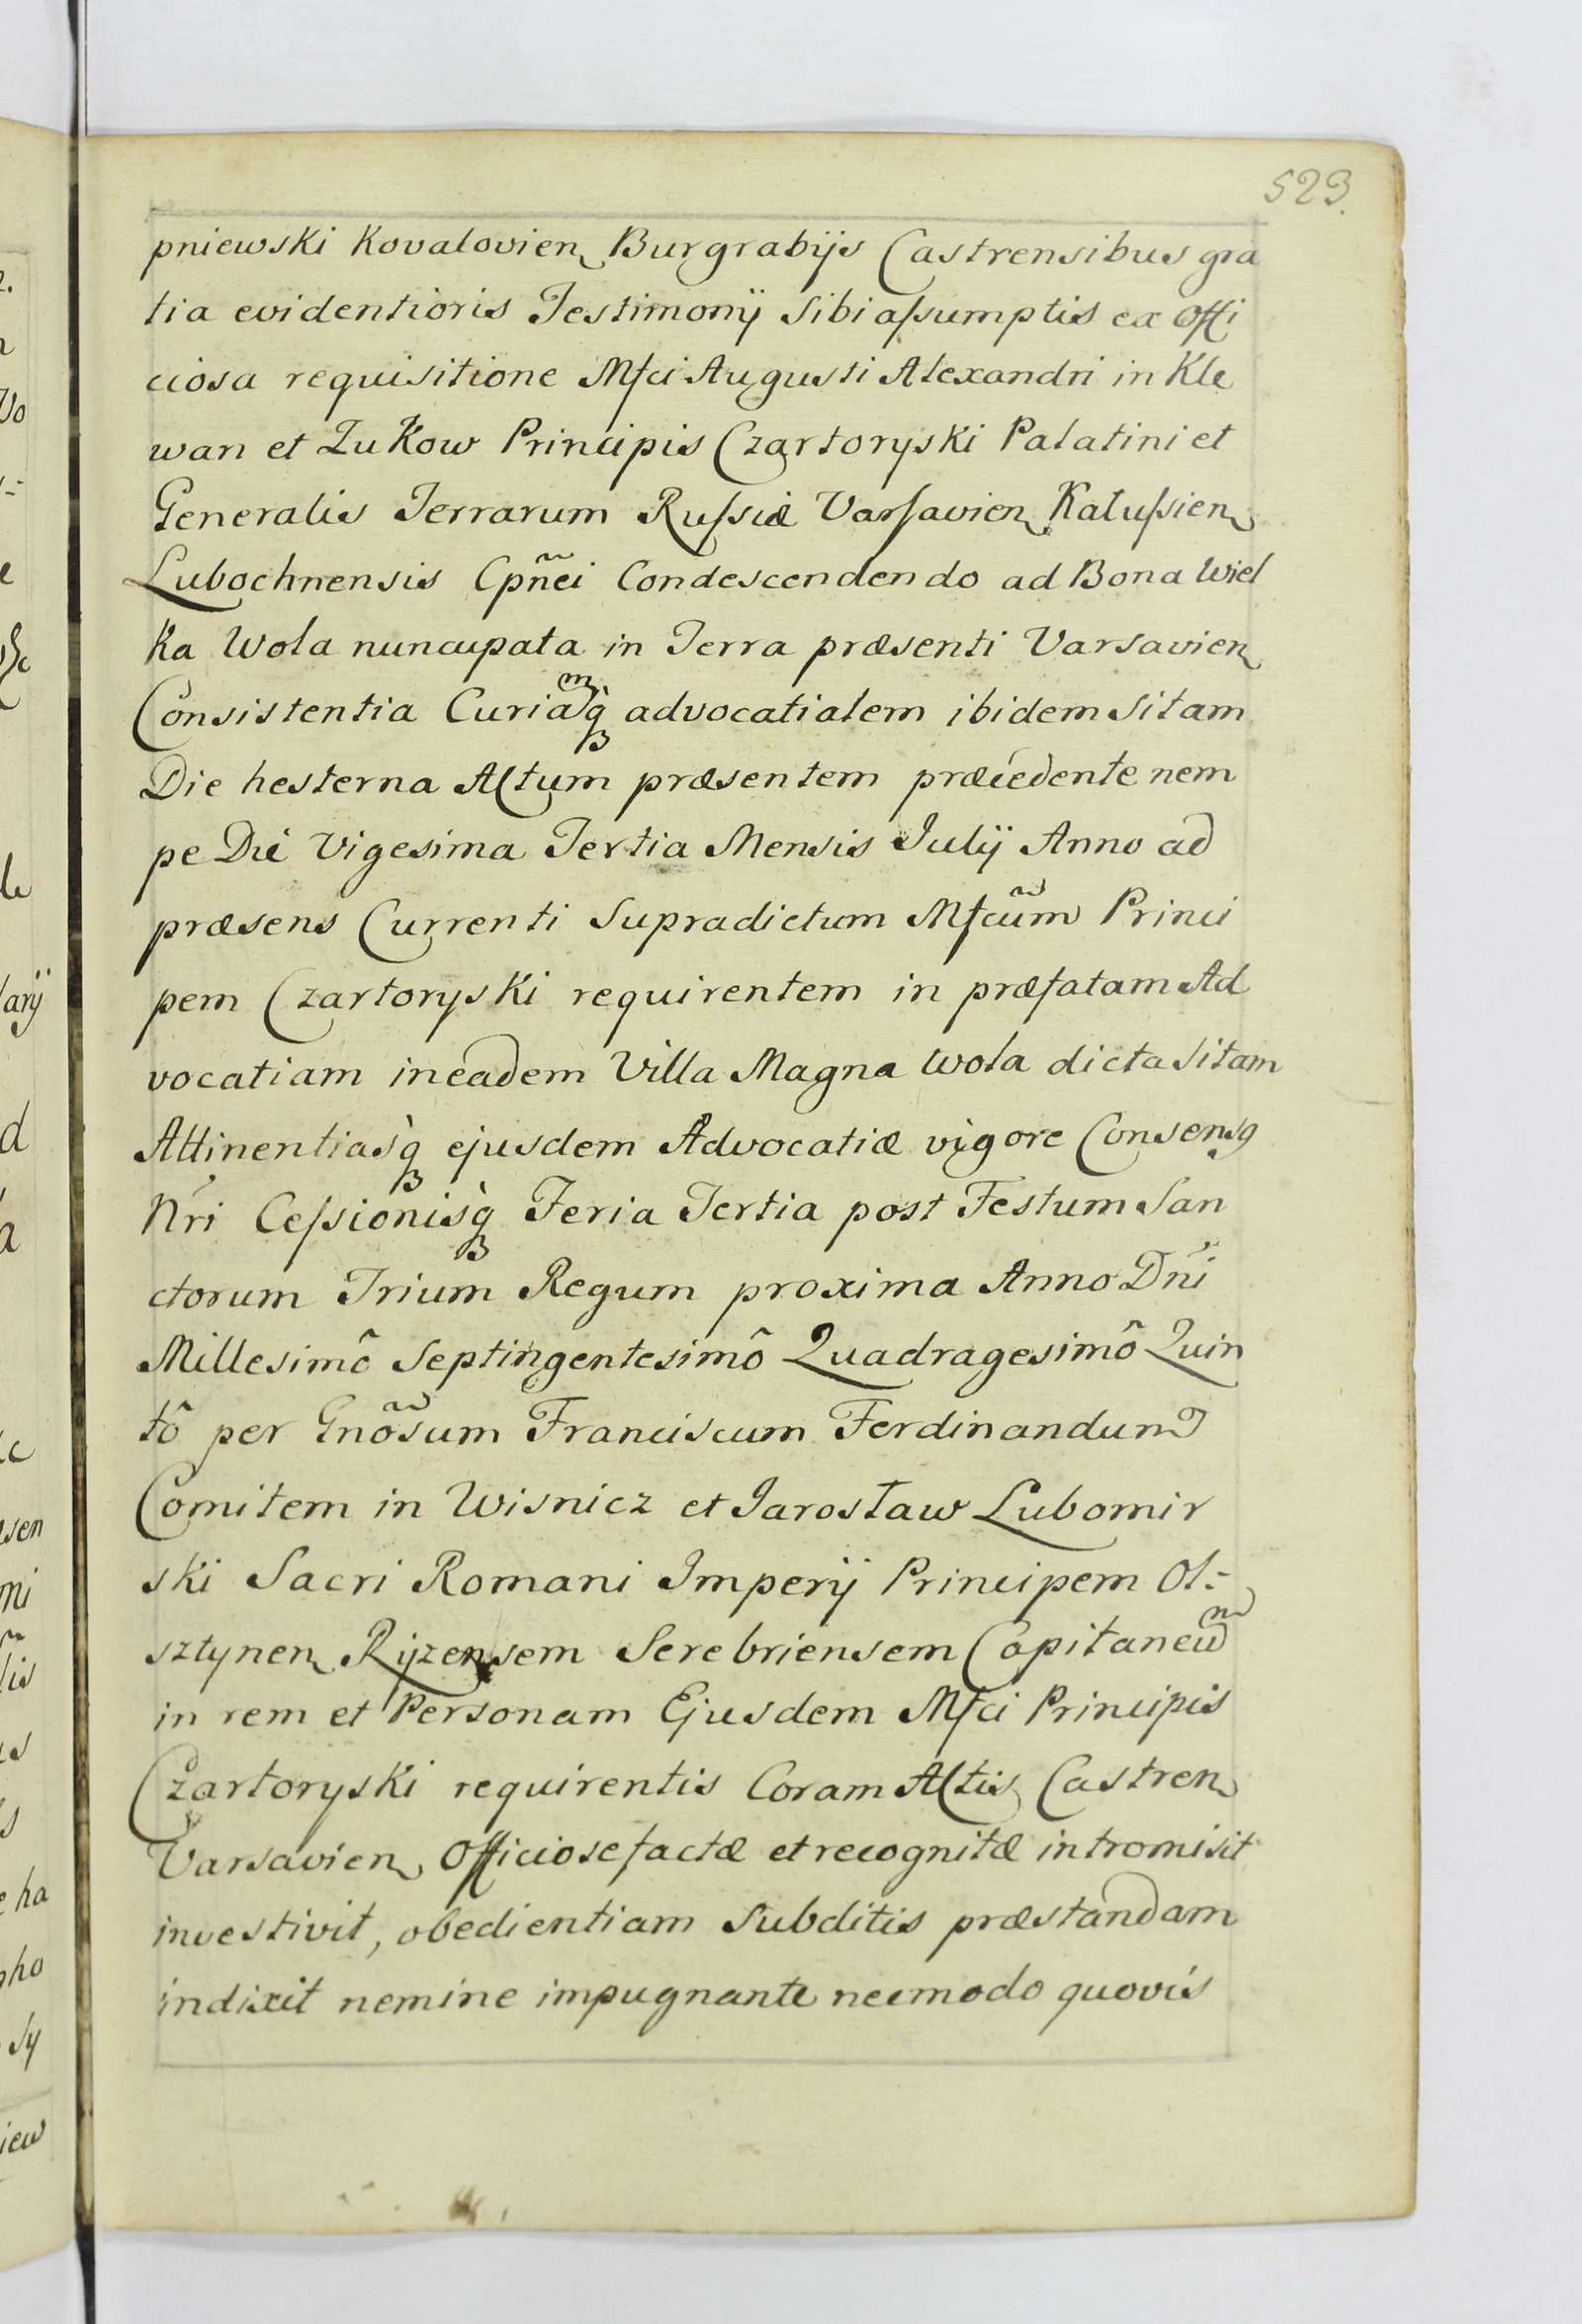 523.
pniewski Kovalovien Burgrabijs Castrensibus gra
tia evidentioris Testimonij Sibi aſsumptis ex Offi
ciosa requisitione Mfci Augusti Alexandri in Kle
wan et Zukow Principis Czartoryski Palatini et
Generalis Terrarum Ruſsiæ Varſavien Kaluſsien
Lubochnensis Cpñei Condescendendo ad Bona Wiel
ka Wola nuncupata in Terra præsenti Varsavien
Consistentia Curiamq̀ȝ advocatialem ibidem Sitam
Die hesterna Actum præsentem præcedente nem
pe Die Vigesima Tertia Mensis Julij Anno ad
præsens Currenti Supradictum Mfcum̃ Princi
pem Czartoryski requirentem in præfatam Ad
vocatiam in eadem Villa Magna Wola dicta Sitam
Attinentiasq̀ȝ ejusdem Advocatiæ vigore Consensꝯ
Nr̃i Ceſsionisq̀ȝ Feria Tertia post Festum San
ctorum Trium Regum proxima Anno Dñi
Millesimô Septingentesimô Quadragesimô Quin
tô per Gnõsum Franciscum Ferdinandum
Comitem in Wisnicz et Jarosław Lubomir
ski Sacri Romani Imperij Principem Ol:
sztynen Ryzensem Serebriensem Capitaneum
in rem et Personam Ejusdem Mfci Principis
Czartoryski requirentis Coram Actis Castren
Varsavien Officiose factæ et recognitæ intromisit
investivit, obedientiam Subditis præstandam
indixit nemine impugnante necmodo quovis